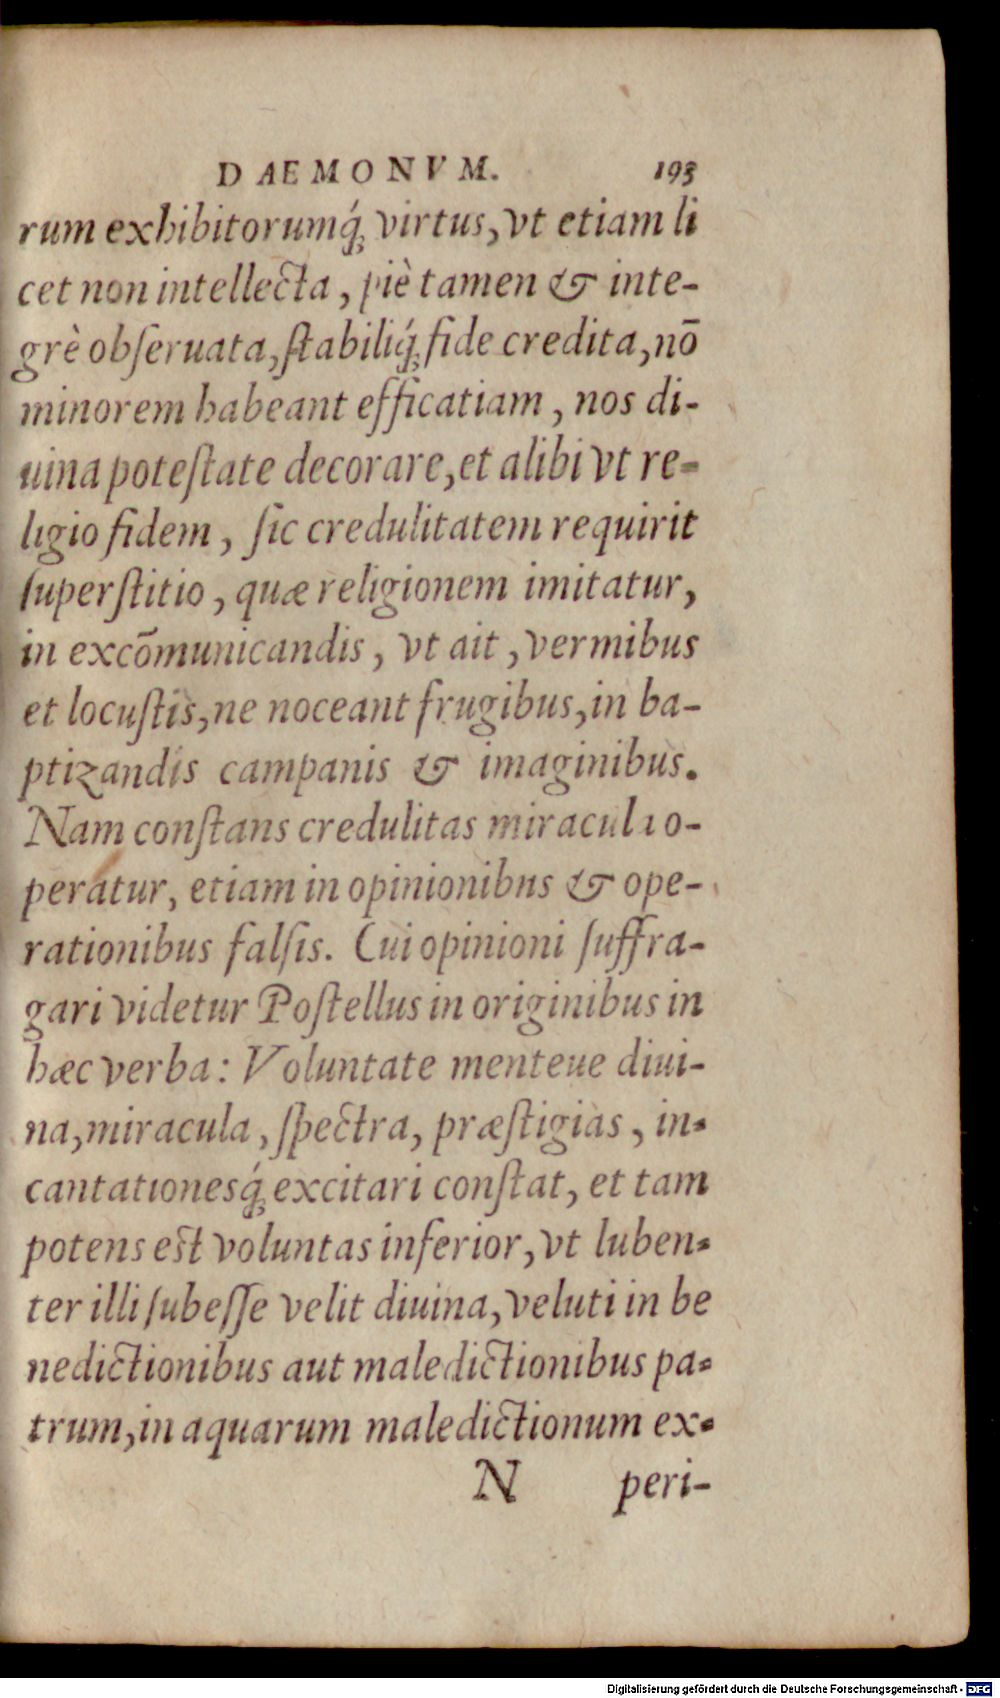 DAEMONVM. 193
rum exhibitorumq́; virtus, vt etiam li
cet non intellecta, piè tamen & inte-
grè obſeruata, ſtabiliq́; fide credita, nō
minorem habeant efficatiam, nos di-
uina poteſtate decorare, et alibi vt re-
ligio fidem, ſic credulitatem requirit
ſuperſtitio, quæ religionem imitatur,
in excōmunicandis, vt ait, vermibus
et locuſtis, ne noceant frugibus, in ba-
ptizandis campanis & imaginibus.
Nam conſtans credulitas miracula o-
peratur, etiam in opinionibns & ope-
rationibus falſis. Cui opinioni ſuffra-
gari videtur Poſtellus in originibus in
hæc verba: Voluntate menteue diui-
na, miracula, ſpectra, præſtigias, in-
cantationesq́; excitari conſtat, et tam
potens est voluntas inferior, vt luben-
ter illi ſubeſſe velit diuina, veluti in be
nedictionibus aut maledictionibus pa-
trum, in aquarum maledictionum ex-
N peri-
Digitalisierung gefördert durch die Deutsche Forschungsgemeinschaft - DFG